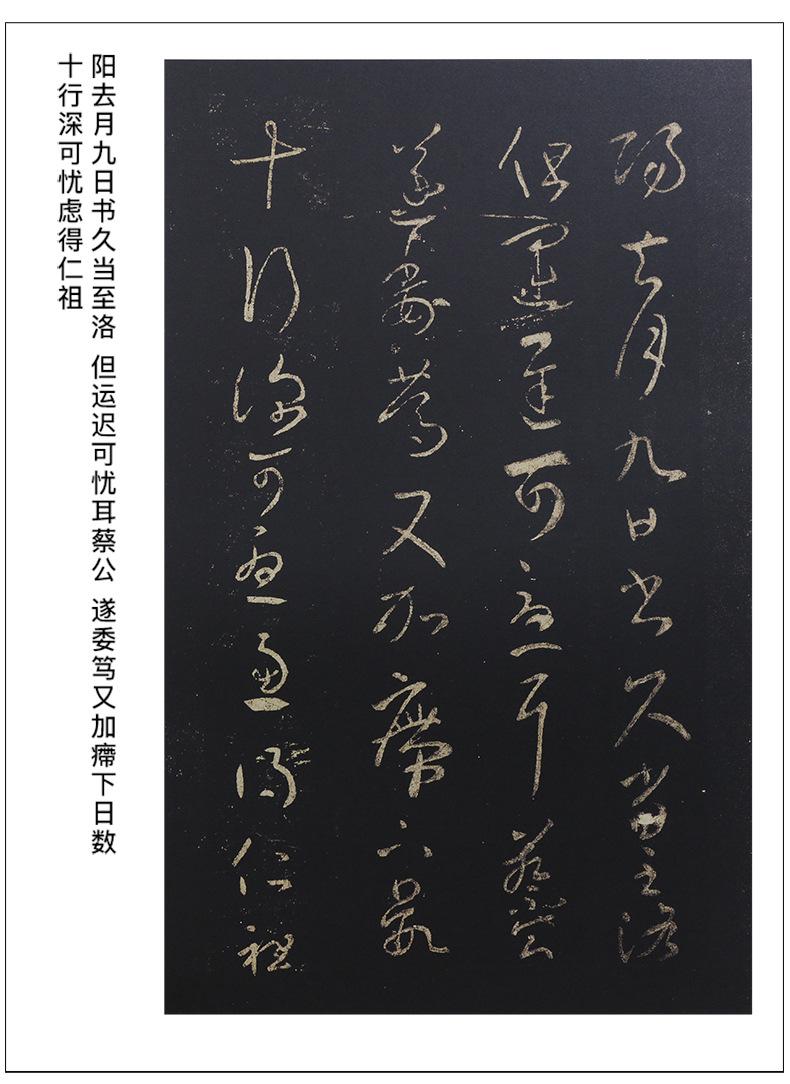 陽去月九日書久當至洛
但運遲可憂耳蔡公
遂委篤又加㿃下日數
十行深可憂慮得仁祖
阳去月九日书久当至洛 但运迟可忧耳蔡公 遂委笃又加㿃下日数
十行深可忧虑得仁祖